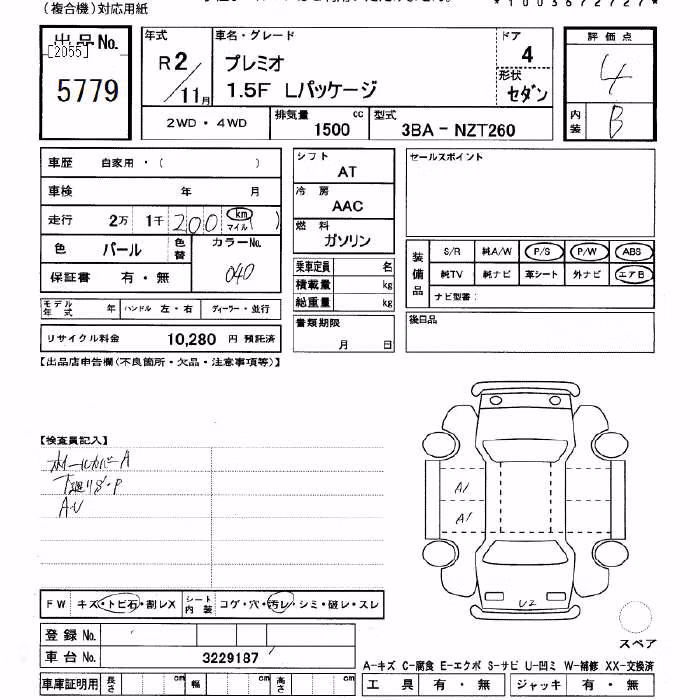 (複合機)対応用紙
*1003672727*
出品No.
[2055]
5779
年式
R2/11月
車名・グレード
プレミオ
1.5F Lパッケージ
ドア
4
形状
セダン
評価点
4
内装
B
2WD・4WD
排気量 cc
1500
型式
3BA-NZT260
車歴 自家用・( )
車検 年 月
走行 2万 1千 200 km マイル ( )
色 パール 色替 カラーNo.
040
保証書 有・無
モデル年式 年 ハンドル 左・右 ディーラー・並行
リサイクル料金 10,280 円 預託済
シフト
AT
冷房
AAC
燃料
ガソリン
乗車定員 名
積載量 kg
総重量 kg
書類期限
月 日
セールスポイント
装備品
S/R 純A/W P/S P/W ABS
純TV 純ナビ 革シート 外ナビ エアB
ナビ型番:
後日品
【出品店申告欄(不良箇所・欠品・注意事項等)】
【検査員記入】
ホイールカバーA
下廻りサ・P
AU
A1
A1
U2
スペア
FW キズ・トビ石・割レX シート内装 コゲ・穴・汚レ・シミ・破レ・スレ
登録No.
車台No. 3229187
A-キズ C-腐食 E-エクボ S-サビ U-凹ミ W-補修 XX-交換済
車庫証明用 長さ cm 幅 cm 高さ cm
工具 有・無 ジャッキ 有・無